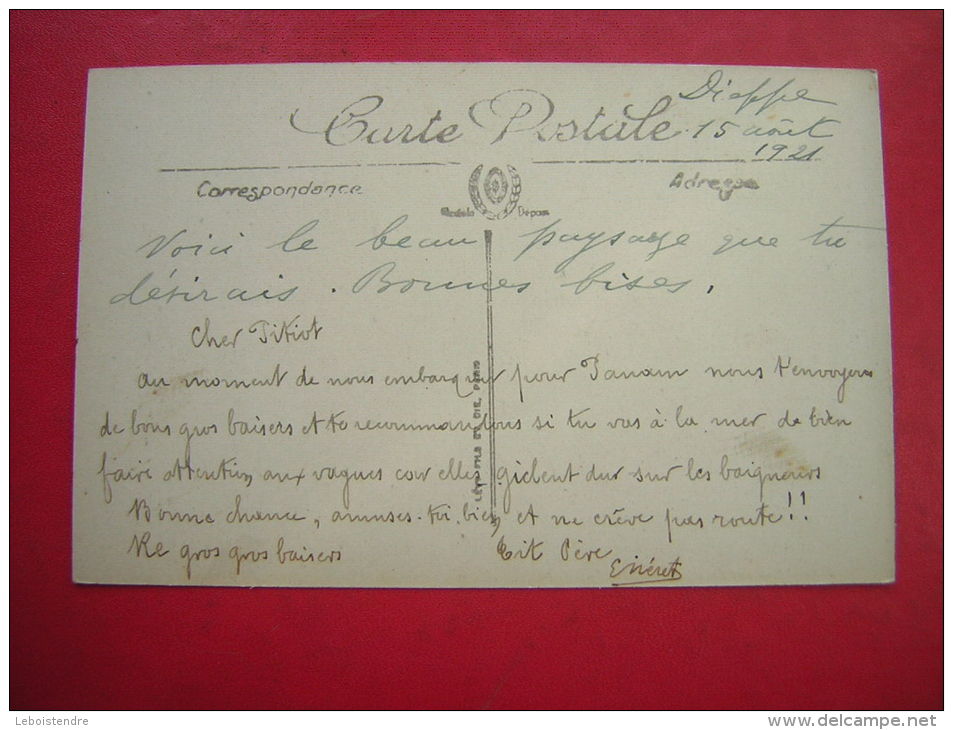 Dieppe
Carte Postale 15 août
1921
Correspondance
Adresse
Voici le beau paysage que tu
désirais. Bonnes bises,
LÉVY FILS ET CIE, PARIS
Cher Titiot
au moment de nous embarquer pour Panam nous t'envoyons
de bons gros baisers et te recommandons si tu vas à la mer de bien
faire attention aux vagues car elles giclent dur sur les baigneurs
Bonne chance, amuses-toi bien et ne crève pas route!!
Re gros gros baisers Tit Père
Leboistendre
www.delcampe.net